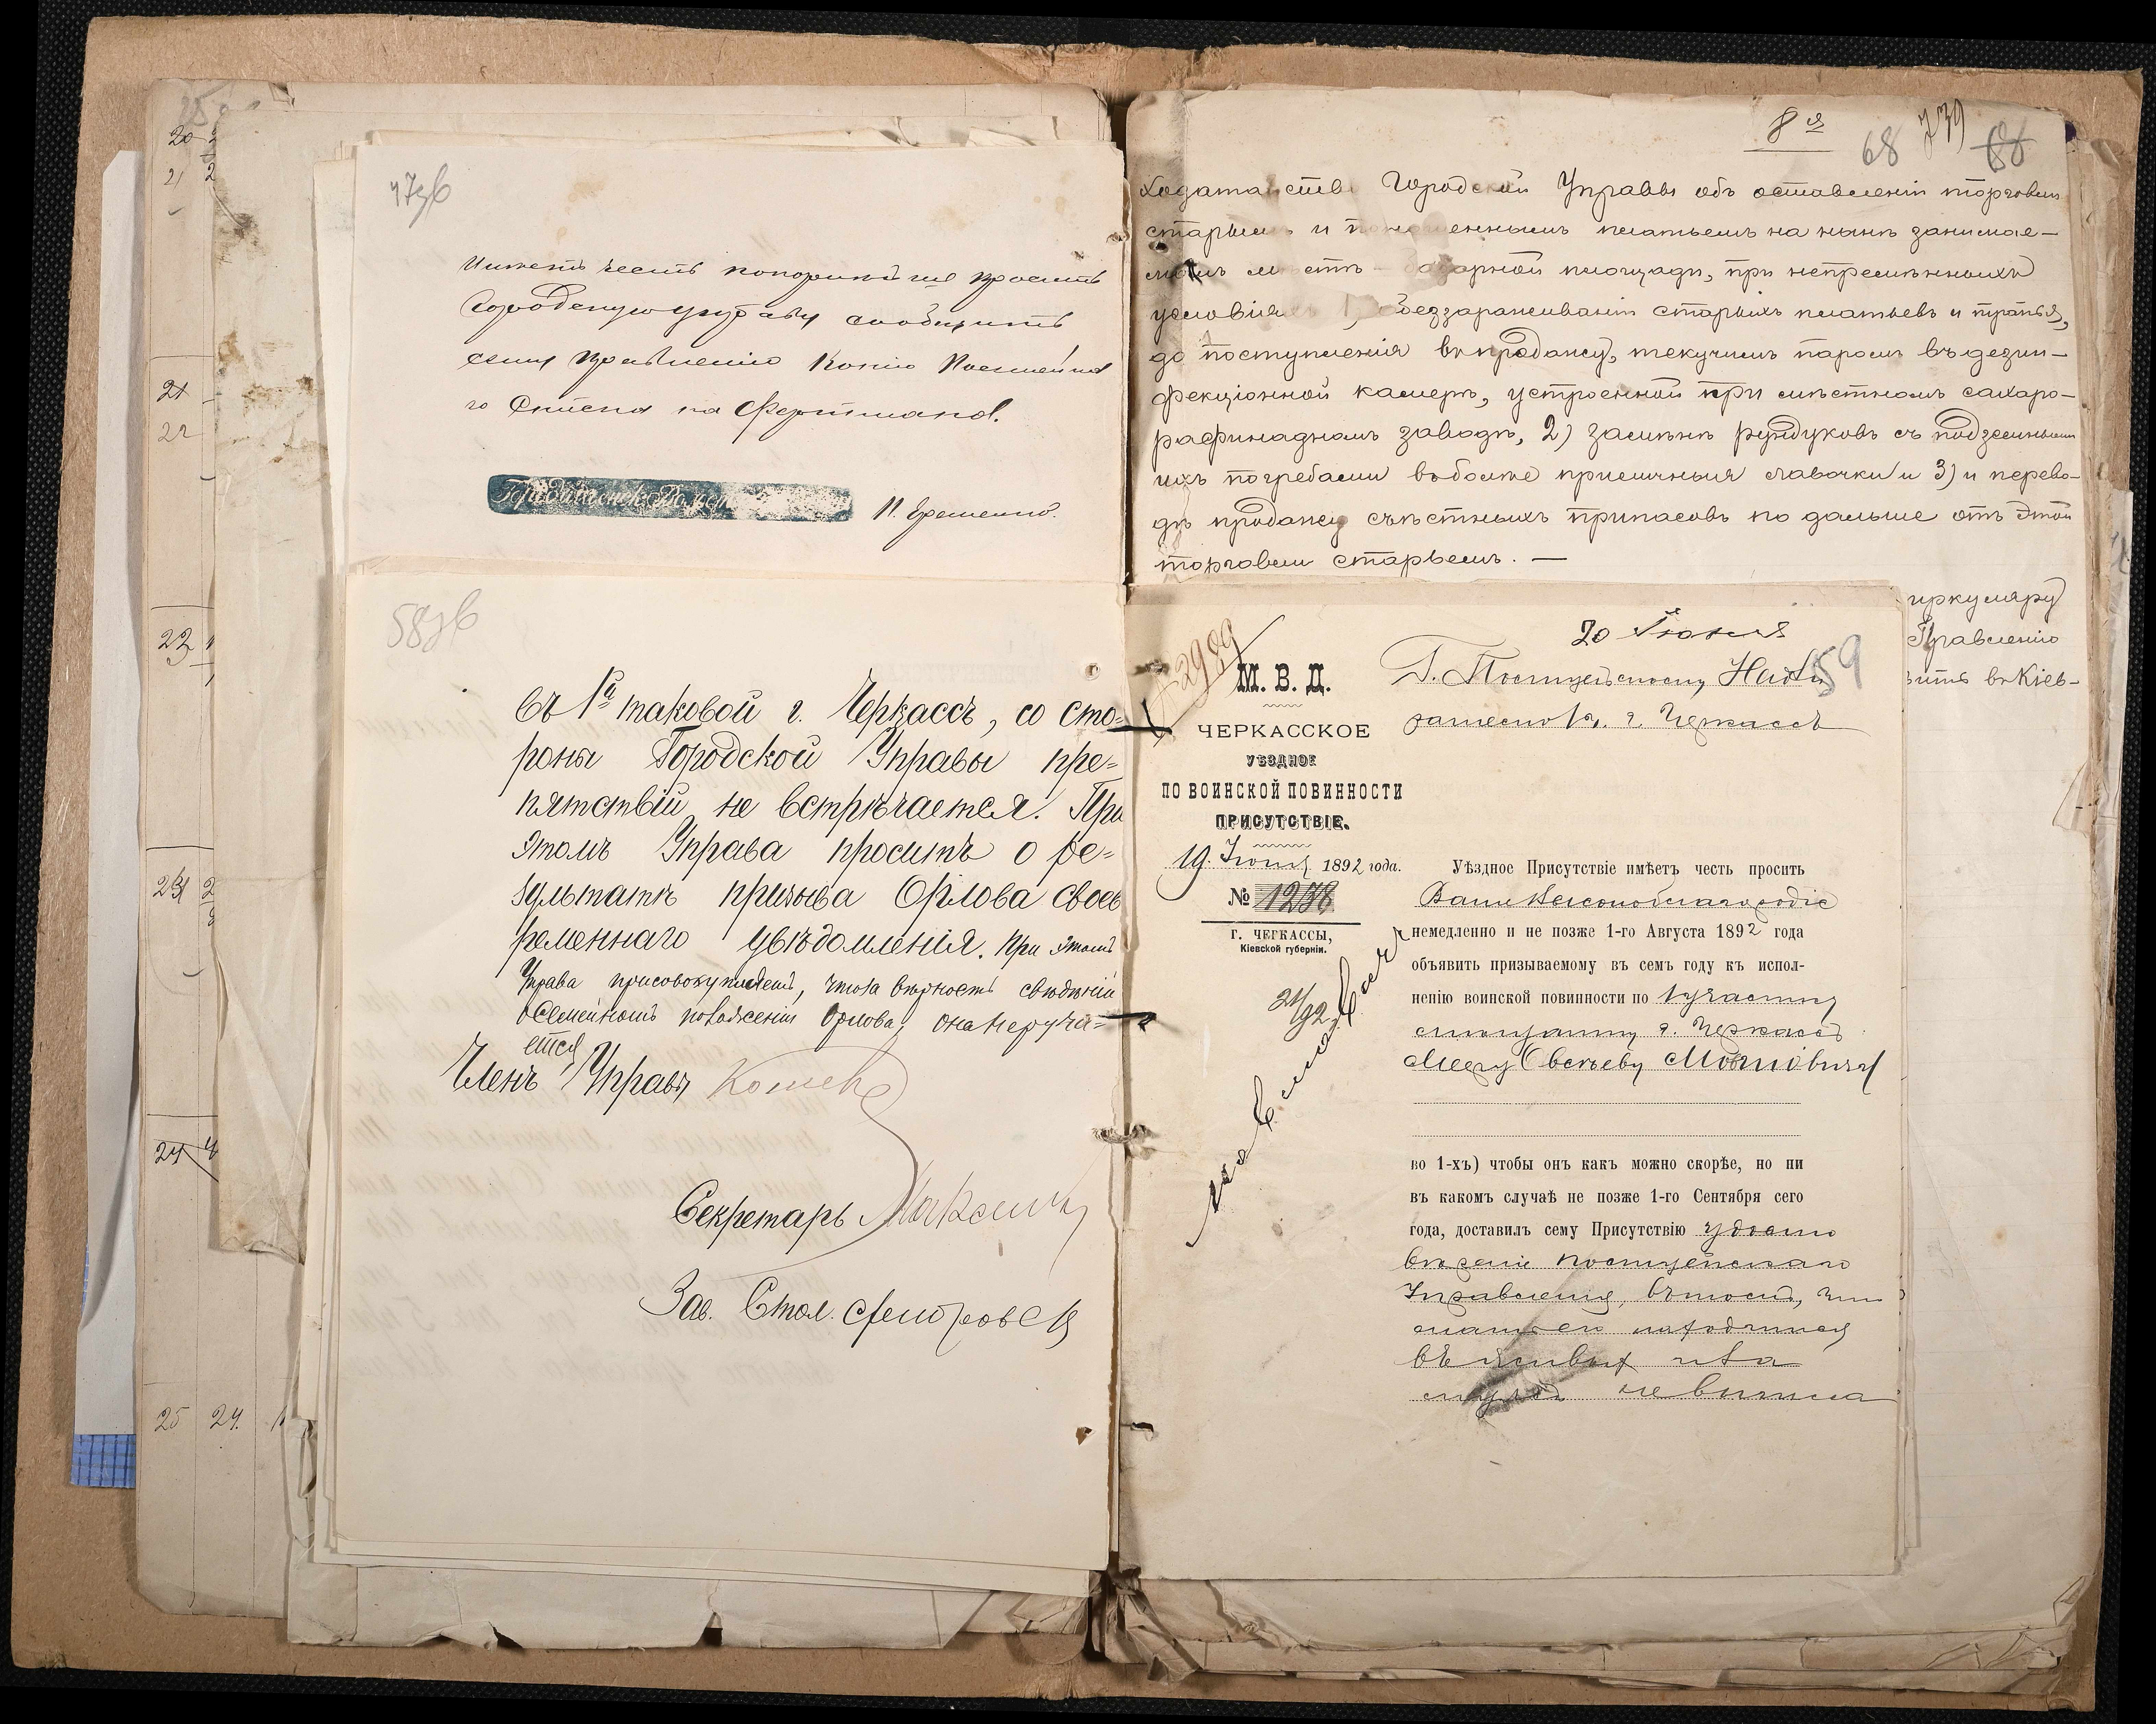 47зв
Имѣетъ честь покорнѣйше просить
Городскую управу сообщить
сему правленію копію Посемейна
го списка на
П. Еременко.
58зв
въ 1й таковой г. Черкассъ, со сто=
роны Городской Управы пре=
пятствій не встрѣчается. При
этомъ Управа проситъ о ре=
зультатѣ призыва Орлова своев
ременнаго увѣдомленія. При этомъ
Управа присовокупляетъ, что за вѣрность свѣденій
о Семейномъ положеніи Орлова, она не руча=
ется
Членъ Управы
Секретарь
Зав. Стол.
8я
68 739 68
Ходатайство Городской Управы объ оставленіи торговли
старьемъ и поношеннымъ платьемъ на нынѣ занимае-
момъ мѣстѣ базарной площади, при непремѣнныхъ
условіяхъ 1) обеззараживаніи старыхъ платьевъ и тряпья,
до поступленія въ продажу, текучимъ паромъ въ дезин-
фекціонной камерѣ, устроенной при мѣстномъ сахаро-
рафинадномъ заводѣ, 2) замѣнѣ рундуковъ съ подземными
ихъ погребами въ болѣе приличныя лавочки и 3) и перево-
дѣ продажи съѣстныхъ припасовъ по дальше отъ этой
торговли старьемъ. —
иркуляру
Правленію
вить въ Кіев-
2989
20 Іюня
59
М. В. Д.
Г. Полицейскому Над
зирателю г. Черкассъ
ЧЕРКАССКОЕ
УѢЗДНОЕ
ПО ВОИНСКОЙ ПОВИННОСТИ
ПРИСУТСТВІЕ.
19 Іюня 1892 года.
№ 1278
Г. ЧЕРКАССЫ,
Кіевской губерніи.
21/92
Уѣздное Присутствіе имѣетъ честь просить
Ваше Высокоблагородіе
немедленно и не позже 1-го Августа 1892 года
объявить призываемому въ семъ году къ испол-
ненію воинской повинности по 1 участку
мѣщанину г. Черкассъ
Овсѣеву
во 1-хъ) чтобы онъ какъ можно скорѣе, но ни
въ какомъ случаѣ не позже 1-го Сентября сего
года, доставилъ сему Присутствію удосто
вѣреніе Полицейскаго
Управленія, въ томъ, что
мать его находится
въ живыхъ и за
мужъ не вышла